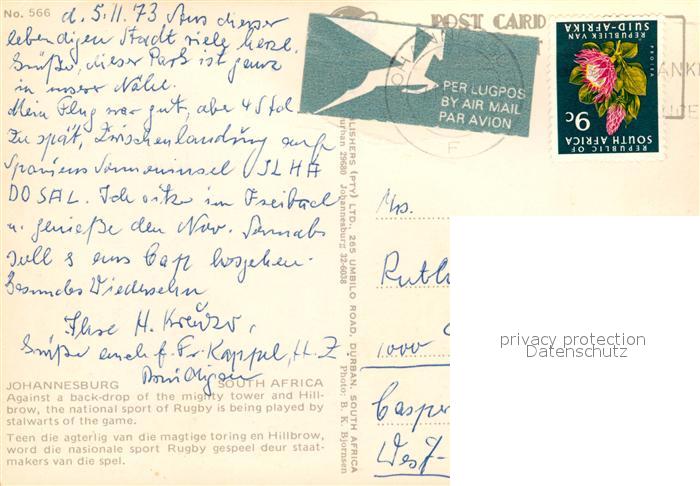 No. 566
d. 5.11.73 Aus dieser
lebendigen Stadt viele herzl.
Grüße, dieser Park ist ganz
in unserer Nähe.
Mein Flug war gut, aber 4 Std
zu spät, Zwischenlandung auf
Spaniens Sonneninsel ISLHA
DO SAL. Ich sitze im Freibad
u. genieße den Nov. Sonnabd
soll es ans Cap losgehen.
Gesundes Wiedersehn
Ilse H.
Grüße auch f. Fr. Kappel, H. Z
JOHANNESBURG SOUTH AFRICA
Against a back-drop of the mighty tower and Hill-
brow, the national sport of Rugby is being played by
stalwarts of the game.
Teen die agterlig van die magtige toring en Hillbrow,
word die nasionale sport Rugby gespeel deur staat-
makers van die spel.
LISHERS (PTY) LTD., 265 UMBILO ROAD, DURBAN, SOUTH AFRICA
urban 29680 Johannesburg 32-6038
Photo: B. K. Bjornsen
POST CARD
PER LUGPOS
BY AIR MAIL
PAR AVION
REPUBLIC OF
SOUTH AFRICA
9c
PROTEA
REPUBLIEK VAN
SUID-AFRIKA
Mrs.
Ruth
1000
Casper
West-
privacy protection
Datenschutz